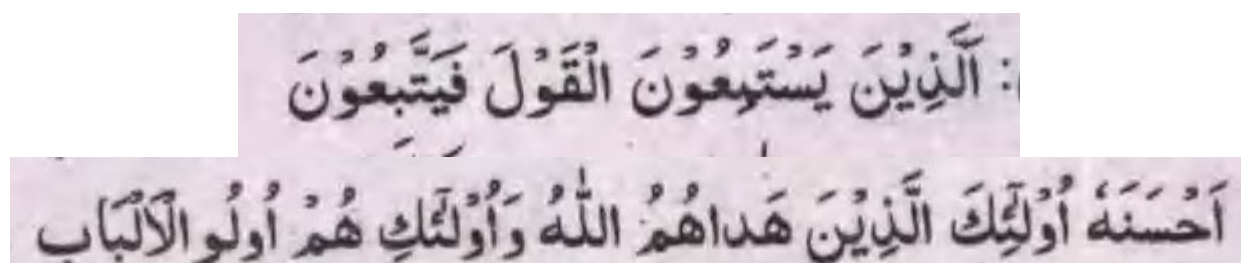 : اَلَّذِيْنَ يَسْتَمِعُوْنَ الْقَوْلَ فَيَتَّبِعُوْنَ
اَحْسَنَهٗ اُوْلٰٓئِكَ الَّذِيْنَ هَداهُمُ اللّٰهُ وَاُوْلٰٓئِكِ هُمْ اُولُو الْاَلْبَابِ